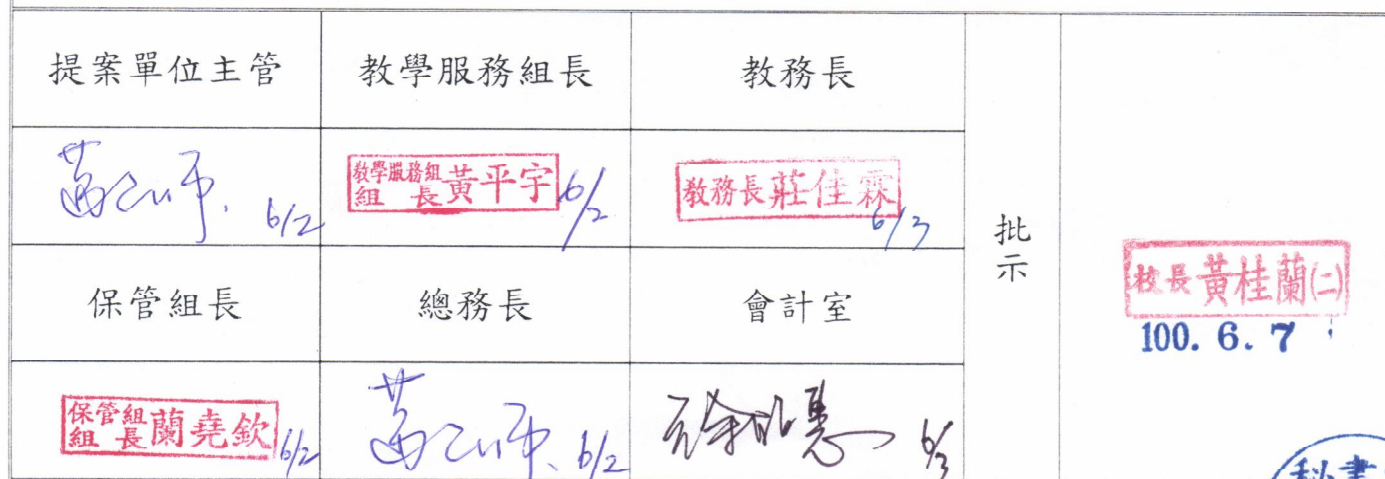 提案單位主管 教學服務組長 教務長
6/2 教學服務組組長黃平宇 6/2 教務長莊佳霖 6/3
批示
校長黃桂蘭(二)
100. 6. 7
保管組長 總務長 會計室
保管組組長蘭堯欽 6/2 6/2 6/3
秘書